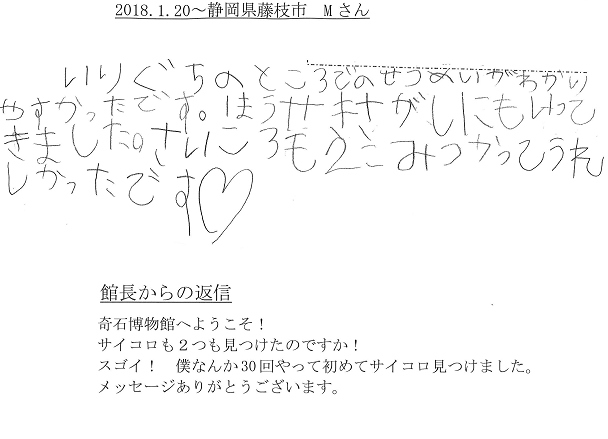 2018.1.20～静岡県藤枝市　Mさん
いりぐちのところでのせつめいがわかり
やすかったです。ほうせきさがしにもいって
きました。さいころも2こみつかってうれ
しかったです♡
館長からの返信
奇石博物館へようこそ！
サイコロも２つも見つけたのですか！
スゴイ！　僕なんか30回やって初めてサイコロ見つけました。
メッセージありがとうございます。